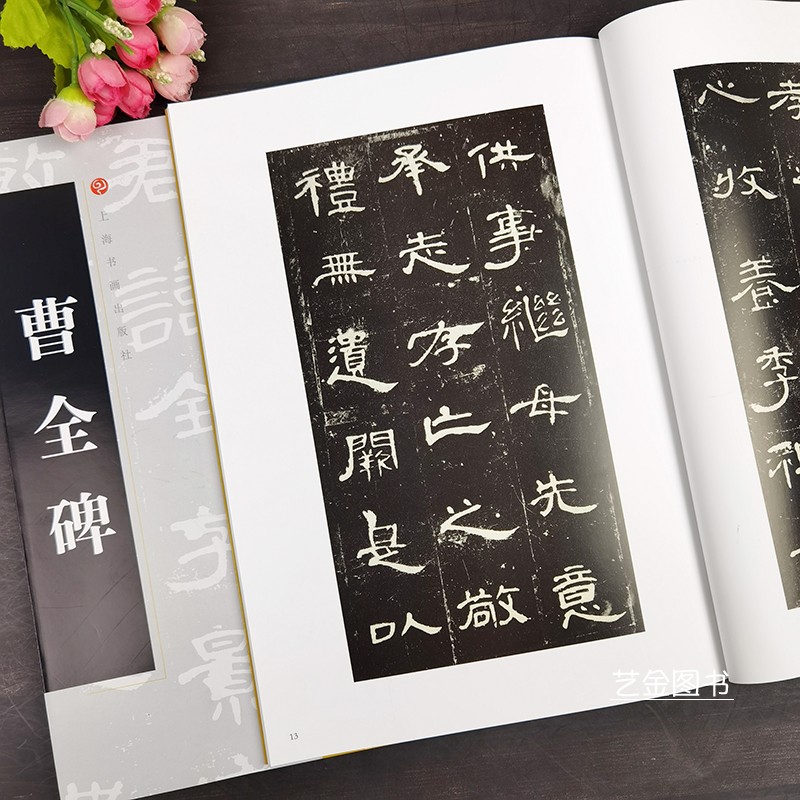 曹全碑
上海书画出版社
君諱全字景
敦
孝
心收養季祖
供事繼母先意
承志存亡之敬
禮無遺闕是以
13
艺金图书